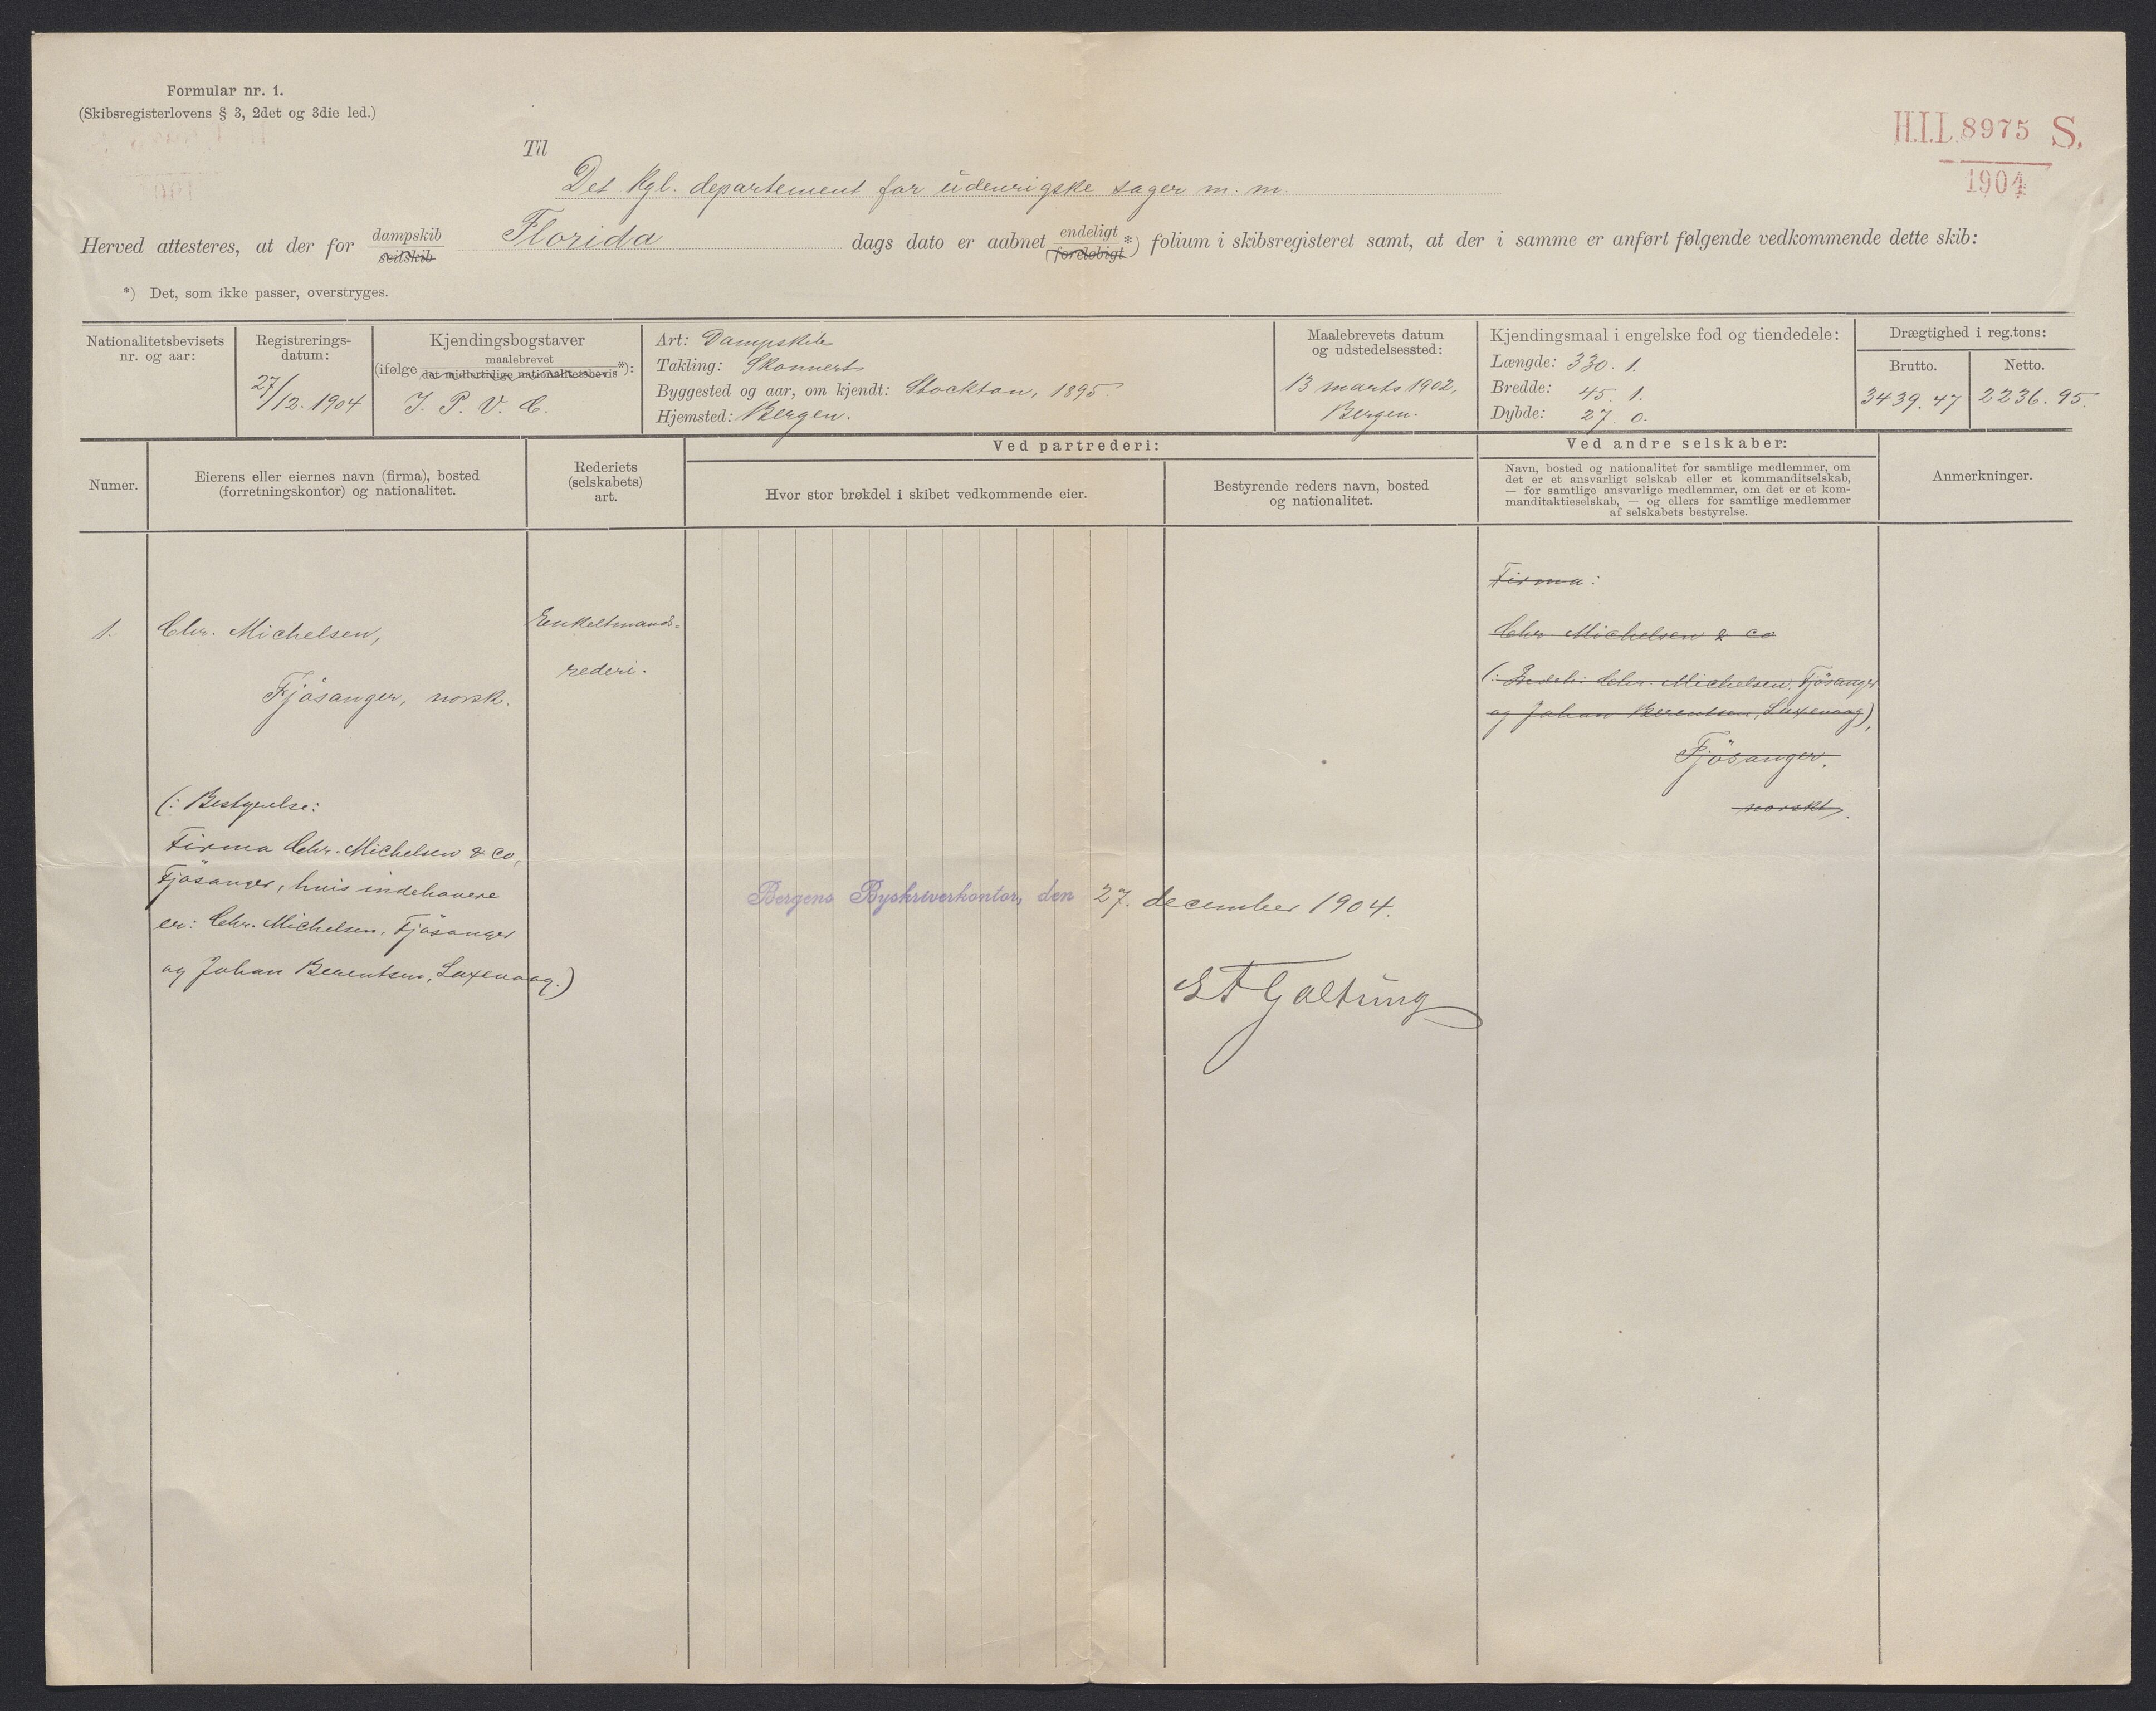 Formular nr. 1.
(Skibsregisterlovens § 3, 2det og 3die led.)
H.I.L 8975 S.
1904
Til
Det kgl. departement for udenrigske sager m. m.
Herved attesteres, at der for dampskib Florida dags dato er aabnet endeligt *) folium i skibsregisteret samt, at der i samme er anført følgende vedkommende dette skib:
seilskib (foreløbigt
*) Det, som ikke passer, overstryges.
Nationalitetsbevisets
nr. og aar:
Registrerings-
datum:
27/12. 1904
Kjendingsbogstaver
(ifølge maalebrevet
det midlertidige nationalitetsbevis *):
J. P. V. C.
Art: Dampskib
Takling: Skonnert
Byggested og aar, om kjendt: Stockton, 1895.
Hjemsted: Bergen.
Maalebrevets datum
og udstedelsessted:
13 marts 1902,
Bergen.
Kjendingsmaal i engelske fod og tiendedele:
Længde: 330. 1.
Bredde: 45. 1.
Dybde: 27. 0.
Drægtighed i reg.tons:
Brutto. Netto.
3439. 47 2236. 95.
Numer.
Eierens eller eiernes navn (firma), bosted
(forretningskontor) og nationalitet.
Rederiets
(selskabets)
art.
Ved partrederi:
Hvor stor brøkdel i skibet vedkommende eier.
Bestyrende reders navn, bosted
og nationalitet.
Ved andre selskaber:
Navn, bosted og nationalitet for samtlige medlemmer, om
det er et ansvarligt selskab eller et kommanditselskab,
— for samtlige ansvarlige medlemmer, om det er et kom-
manditaktieselskab, — og ellers for samtlige medlemmer
af selskabets bestyrelse.
Anmerkninger.
1. Chr. Michelsen,
Fjösanger, norsk.
(: Bestyrelse:
Firma Chr. Michelsen & Co,
Fjösanger, hvis indehavere
er: Chr. Michelsen, Fjösanger
og Johan Berentsen, Laxevaag.)
Enkeltmands-
rederi.
Firma:
Chr Michelsen & Co
(: Indeh: Chr. Michelsen, Fjösanger
og Johan Berentsen, Laxevaag),
Fjösanger.
norskt.
Bergens Byskriverkontor, den 27. december 1904.
Galtung